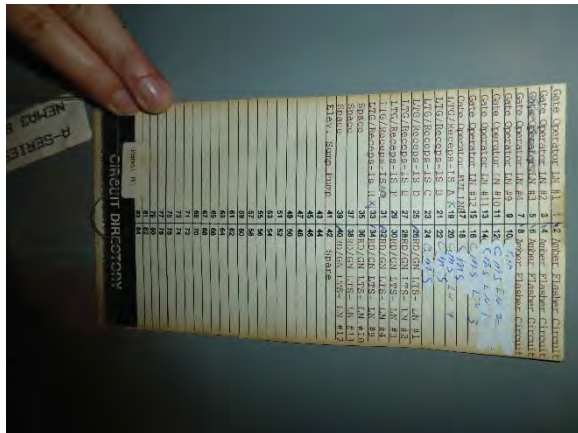 Gate Operator LN #1 1 2 Amber Flasher Circuit
Gate Operator LN #2 3 4 Amber Flasher Circuit
5 6 Amber Flasher Circuit
Gate Operator LN #4 7 8 Amber Flasher Circuit
Gate Operator LN #9 9 10
Gate Operator LN #10 11 12 CMS LN 2
Gate Operator LN #11 13 14 CMS LN 1
Gate Operator LN #12 15 16 CMS LN 3
Gate Operator 17 18 CMS
LTG/Receps-IS A 19 20 CMS LN 4
LTG/Receps-IS B 21 22 CMS
LTG/Receps-IS C 23 24 CMS
LTG/Receps-IS D 25 26 RD/GN LTS- LN #1
LTG/Receps-IS E 27 28 RD/GN LTS- LN #2
LTG/Receps-IS F 29 30 RD/GN LTS- LN #3
LTG/Receps-IS 31 32 RD/GN LTS- LN #4
LTG/Receps-IS 33 34 RD/GN LTS- LN #9
Space 35 36 RD/GN LTS- LN #10
Space 37 38 RD/GN LTS- LN #11
Space 39 40 RD/GN LTS- LN #12
Elev. Sump Pump 41 42 Spare
43 44
45 46
47 48
49 50
51 52
53 54
55 56
57 58
59 60
61 62
63 64
65 66
67 68
69 70
71 72
73 74
75 76
77 78
79 80
81 82
83 84
Panel
CIRCUIT DIRECTORY
A-SERIES
NEMA3